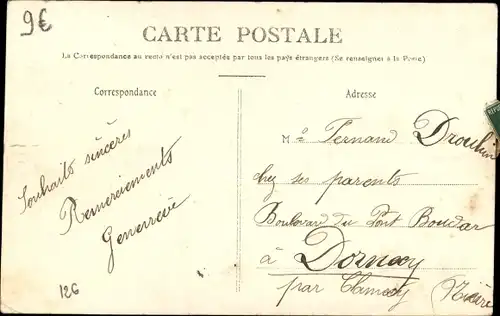 9€
CARTE POSTALE
La Correspondance au recto n'est pas acceptée par tous les pays étrangers (Se renseigner à la Poste)
Correspondance
Adresse
Souhaits sincères
Remerciements
Geneviève
126
M Fernand Droulin
chez ses parents
Boulevard du Pont
à Dornecy
par Clamecy (Nièvre